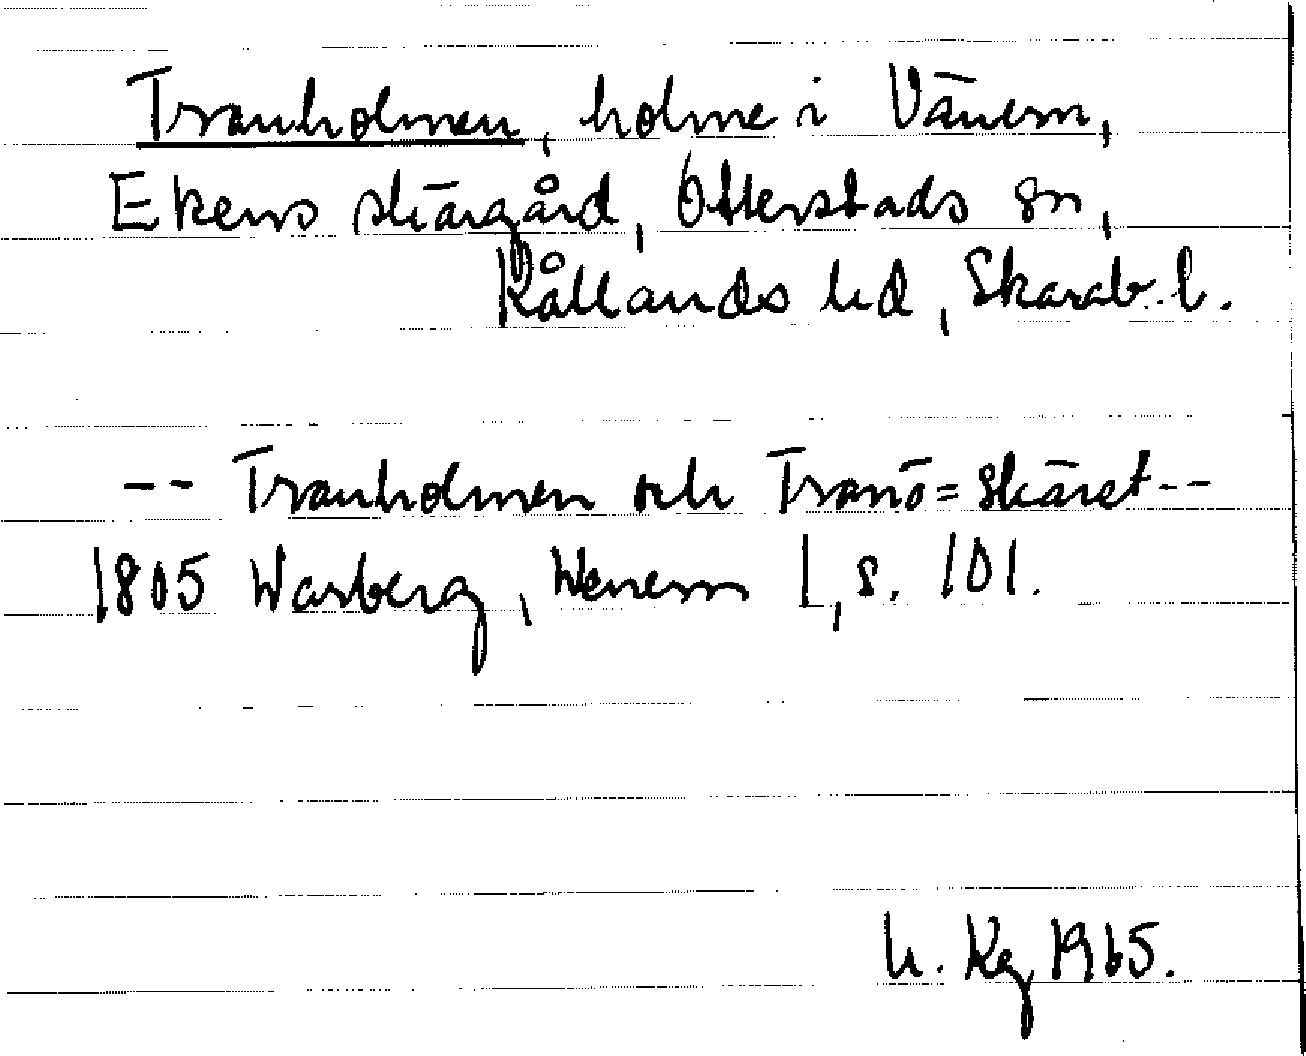 Tranholmen, holme i Vänern,
Ekens skärgård, Otterstads sn,
Kållands hd, Skarab. l.
-- Tranholmen och Tranö=skäret--
1805 Warberg, Wenern I, s. 101.
h. Kg 1965.